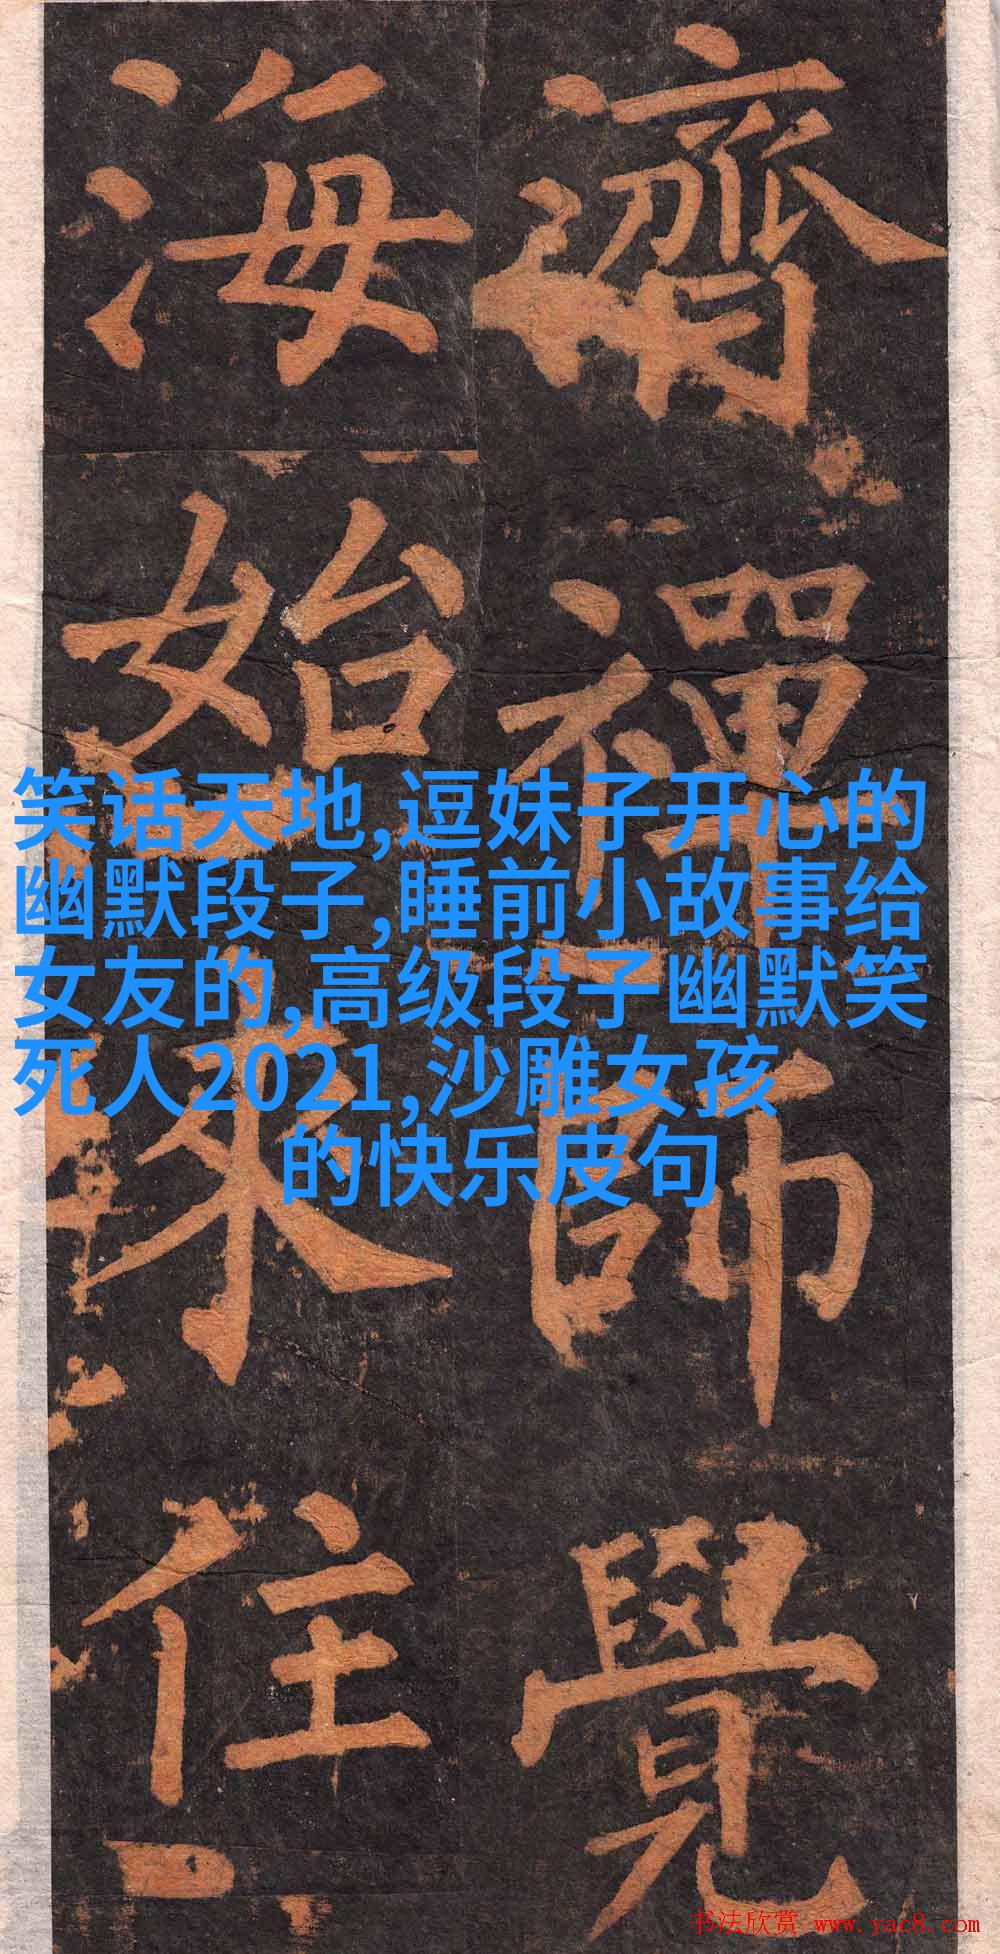 濟禪師覺
海始來住
笑话天地,逗妹子开心的
幽默段子,睡前小故事给
女友的,高级段子幽默笑
死人2021,沙雕女孩
的快乐皮句
书法欣赏 www.yac8.com